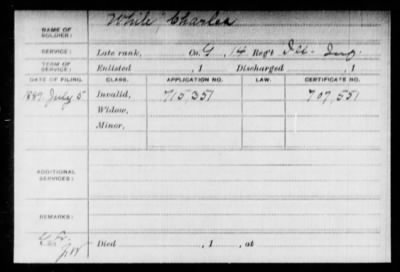 NAME OF SOLDIER: White, Charles
SERVICE: Late rank, Co. G, 14 Reg't Ill. Inf.
TERM OF SERVICE: Enlisted , 1 Discharged , 1
DATE OF FILING. CLASS. APPLICATION NO. LAW. CERTIFICATE NO.
1889, July 5 Invalid, 715,357 707,551
Widow,
Minor,
ADDITIONAL SERVICES:
REMARKS:
Died , 1 , at